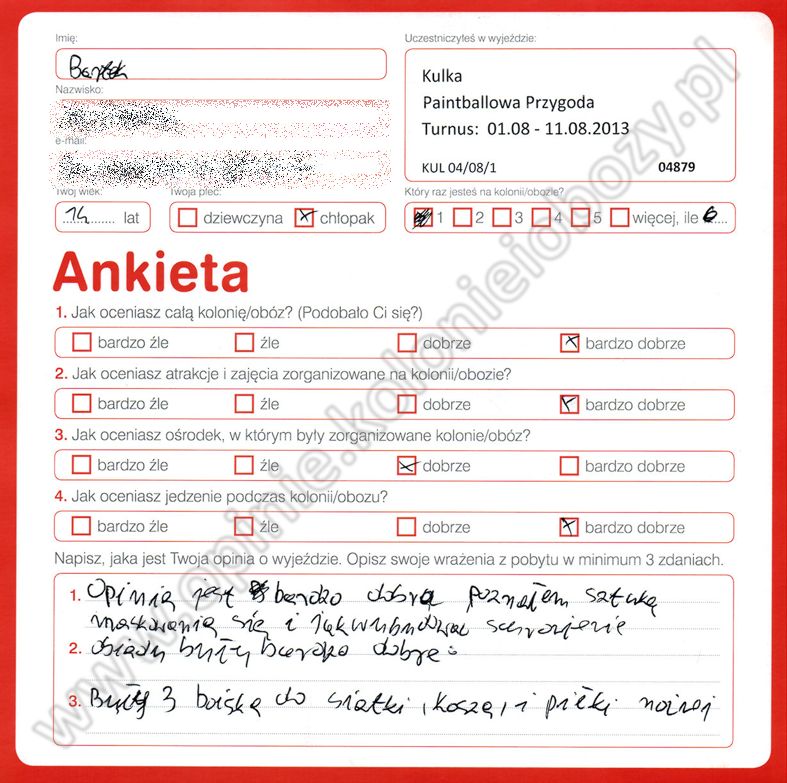 Imię:
Bartek
Nazwisko:
e-mail:
Twój wiek:
14 lat
Twoja płeć:
dziewczyna chłopak
Uczestniczyłeś w wyjeździe:
Kulka
Paintballowa Przygoda
Turnus: 01.08 - 11.08.2013
KUL 04/08/1 04879
Który raz jesteś na kolonii/obozie?
1 2 3 4 5 więcej, ile 6
Ankieta
1. Jak oceniasz całą kolonię/obóz? (Podobało Ci się?)
bardzo źle źle dobrze bardzo dobrze
2. Jak oceniasz atrakcje i zajęcia zorganizowane na kolonii/obozie?
bardzo źle źle dobrze bardzo dobrze
3. Jak oceniasz ośrodek, w którym były zorganizowane kolonie/obóz?
bardzo źle źle dobrze bardzo dobrze
4. Jak oceniasz jedzenie podczas kolonii/obozu?
bardzo źle źle dobrze bardzo dobrze
Napisz, jaka jest Twoja opinia o wyjeździe. Opisz swoje wrażenia z pobytu w minimum 3 zdaniach.
1. Opinia jest bardzo dobra poznałem sztukę
maskowania się i jak wybudować
2. obiady były bardzo dobre.
3. Były 3 boiska do siatki, kosza, i piłki nożnej
www.opinie.kolonieiobozy.pl